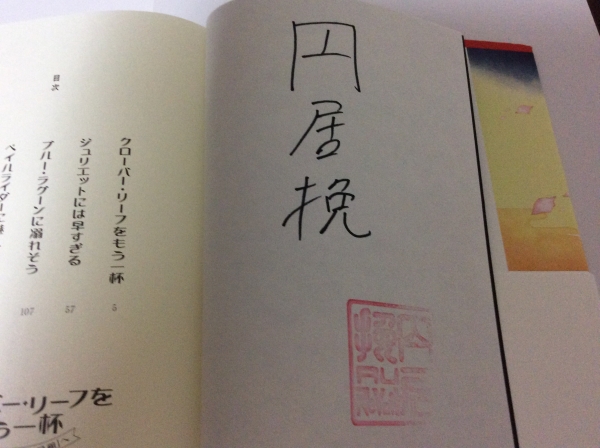 円
居
挽
目次
クローバー・リーフをもう一杯 5
ジュリエットには早すぎる 57
ブルー・ラグーンに溺れそう 107
ペイルライダーに
ー・リーフを
う一杯